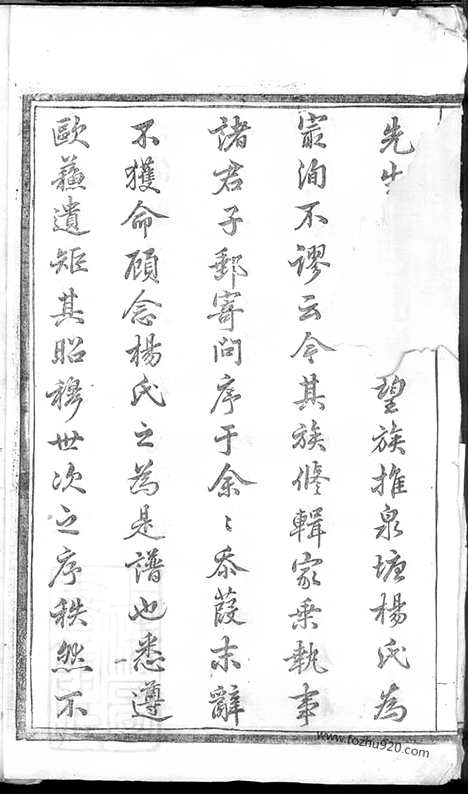 先生望族推泉塘楊氏為
最洵不謬云今其族修輯家乗執事
諸君子郵寄問序于余〻忝葭末辭
不獲命顧念楊氏之為是譜也悉遵
歐蘇遺矩其昭穆世次之序秩然不
www.fozhu920.com